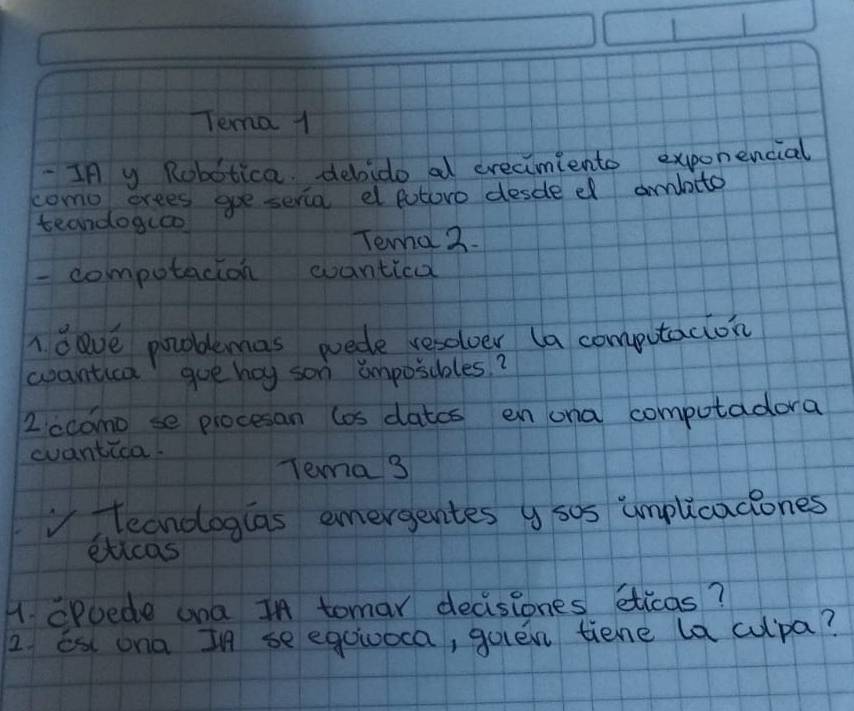 Tema 1
- IA y Robótica. debido al crecimiento exponencial
como crees que sería el futuro desde el ambito
tecnologico
Tema 2.
- computación cuantica
1. ¿Qué problemas puede resolver la computación
cuantica que hoy son imposibles.?
2. ¿cómo se procesan los datos en una computadora
cuantica.
Tema 3
✓ Tecnologías emergentes y sus implicaciones
éticas
1. ¿Puede una IA tomar decisiones éticas?
2. ¿si una IA se equivoca, quién tiene la culpa?